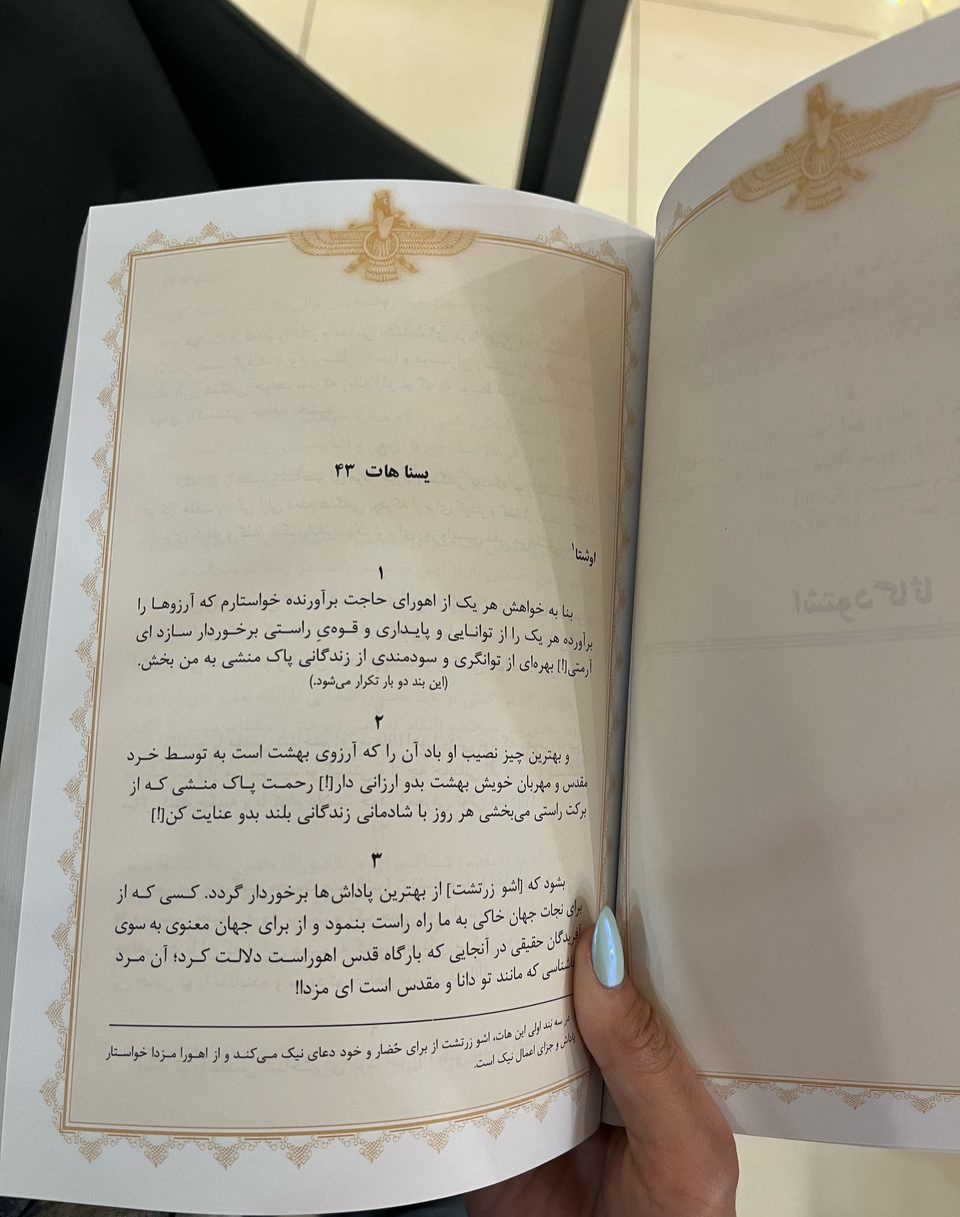 یسنا هات ۴۳
اوشتا۱
۱
بنا به خواهش هر یک از اهورای حاجت برآورنده خواستارم که آرزوها را
برآورده هر یک را از توانایی و پایداری و قوه‌یِ راستی برخوردار سازد ای
آرمتی[!] بهره‌ای از توانگری و سودمندی از زندگانی پاک منشی به من بخش.
(این بند دو بار تکرار می‌شود.)
۲
و بهترین چیز نصیب او باد آن را که آرزوی بهشت است به توسط خرد
مقدس و مهربان خویش بهشت بدو ارزانی دار[!] رحمت پاک منشی که از
برکت راستی می‌بخشی هر روز با شادمانی زندگانی بلند بدو عنایت کن[!]
۳
بشود که [اشو زرتشت] از بهترین پاداش‌ها برخوردار گردد. کسی که از
برای نجات جهان خاکی به ما راه راست بنمود و از برای جهان معنوی به سوی
آفریدگان حقیقی در آنجایی که بارگاه قدس اهوراست دلالت کرد؛ آن مرد
که مانند تو دانا و مقدس است ای مزدا!
در سه بَند اولی این هات، اشو زرتشت از برای حُضار و خود دعای نیک می‌کند و از اهورا مزدا خواستار
پاداش و جزای اعمال نیک است.